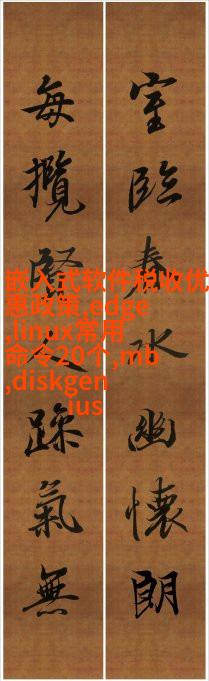 室臨春水幽懷朗
每攬賢人躁氣無
嵌入式软件税收优
惠政策,edge
,linux常用
命令20个,mb
,diskgen
ius